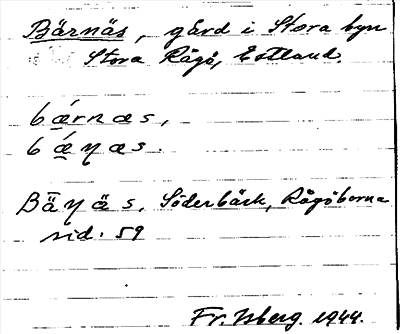 Bärnäs, gård i Stora byn
Stora Rågö, Estland.
bǽrnæs,
bǽŋæs.
Bäŋäs, Söderbäck, Rågöborna
sid. 59
Fr. Isberg. 1944.